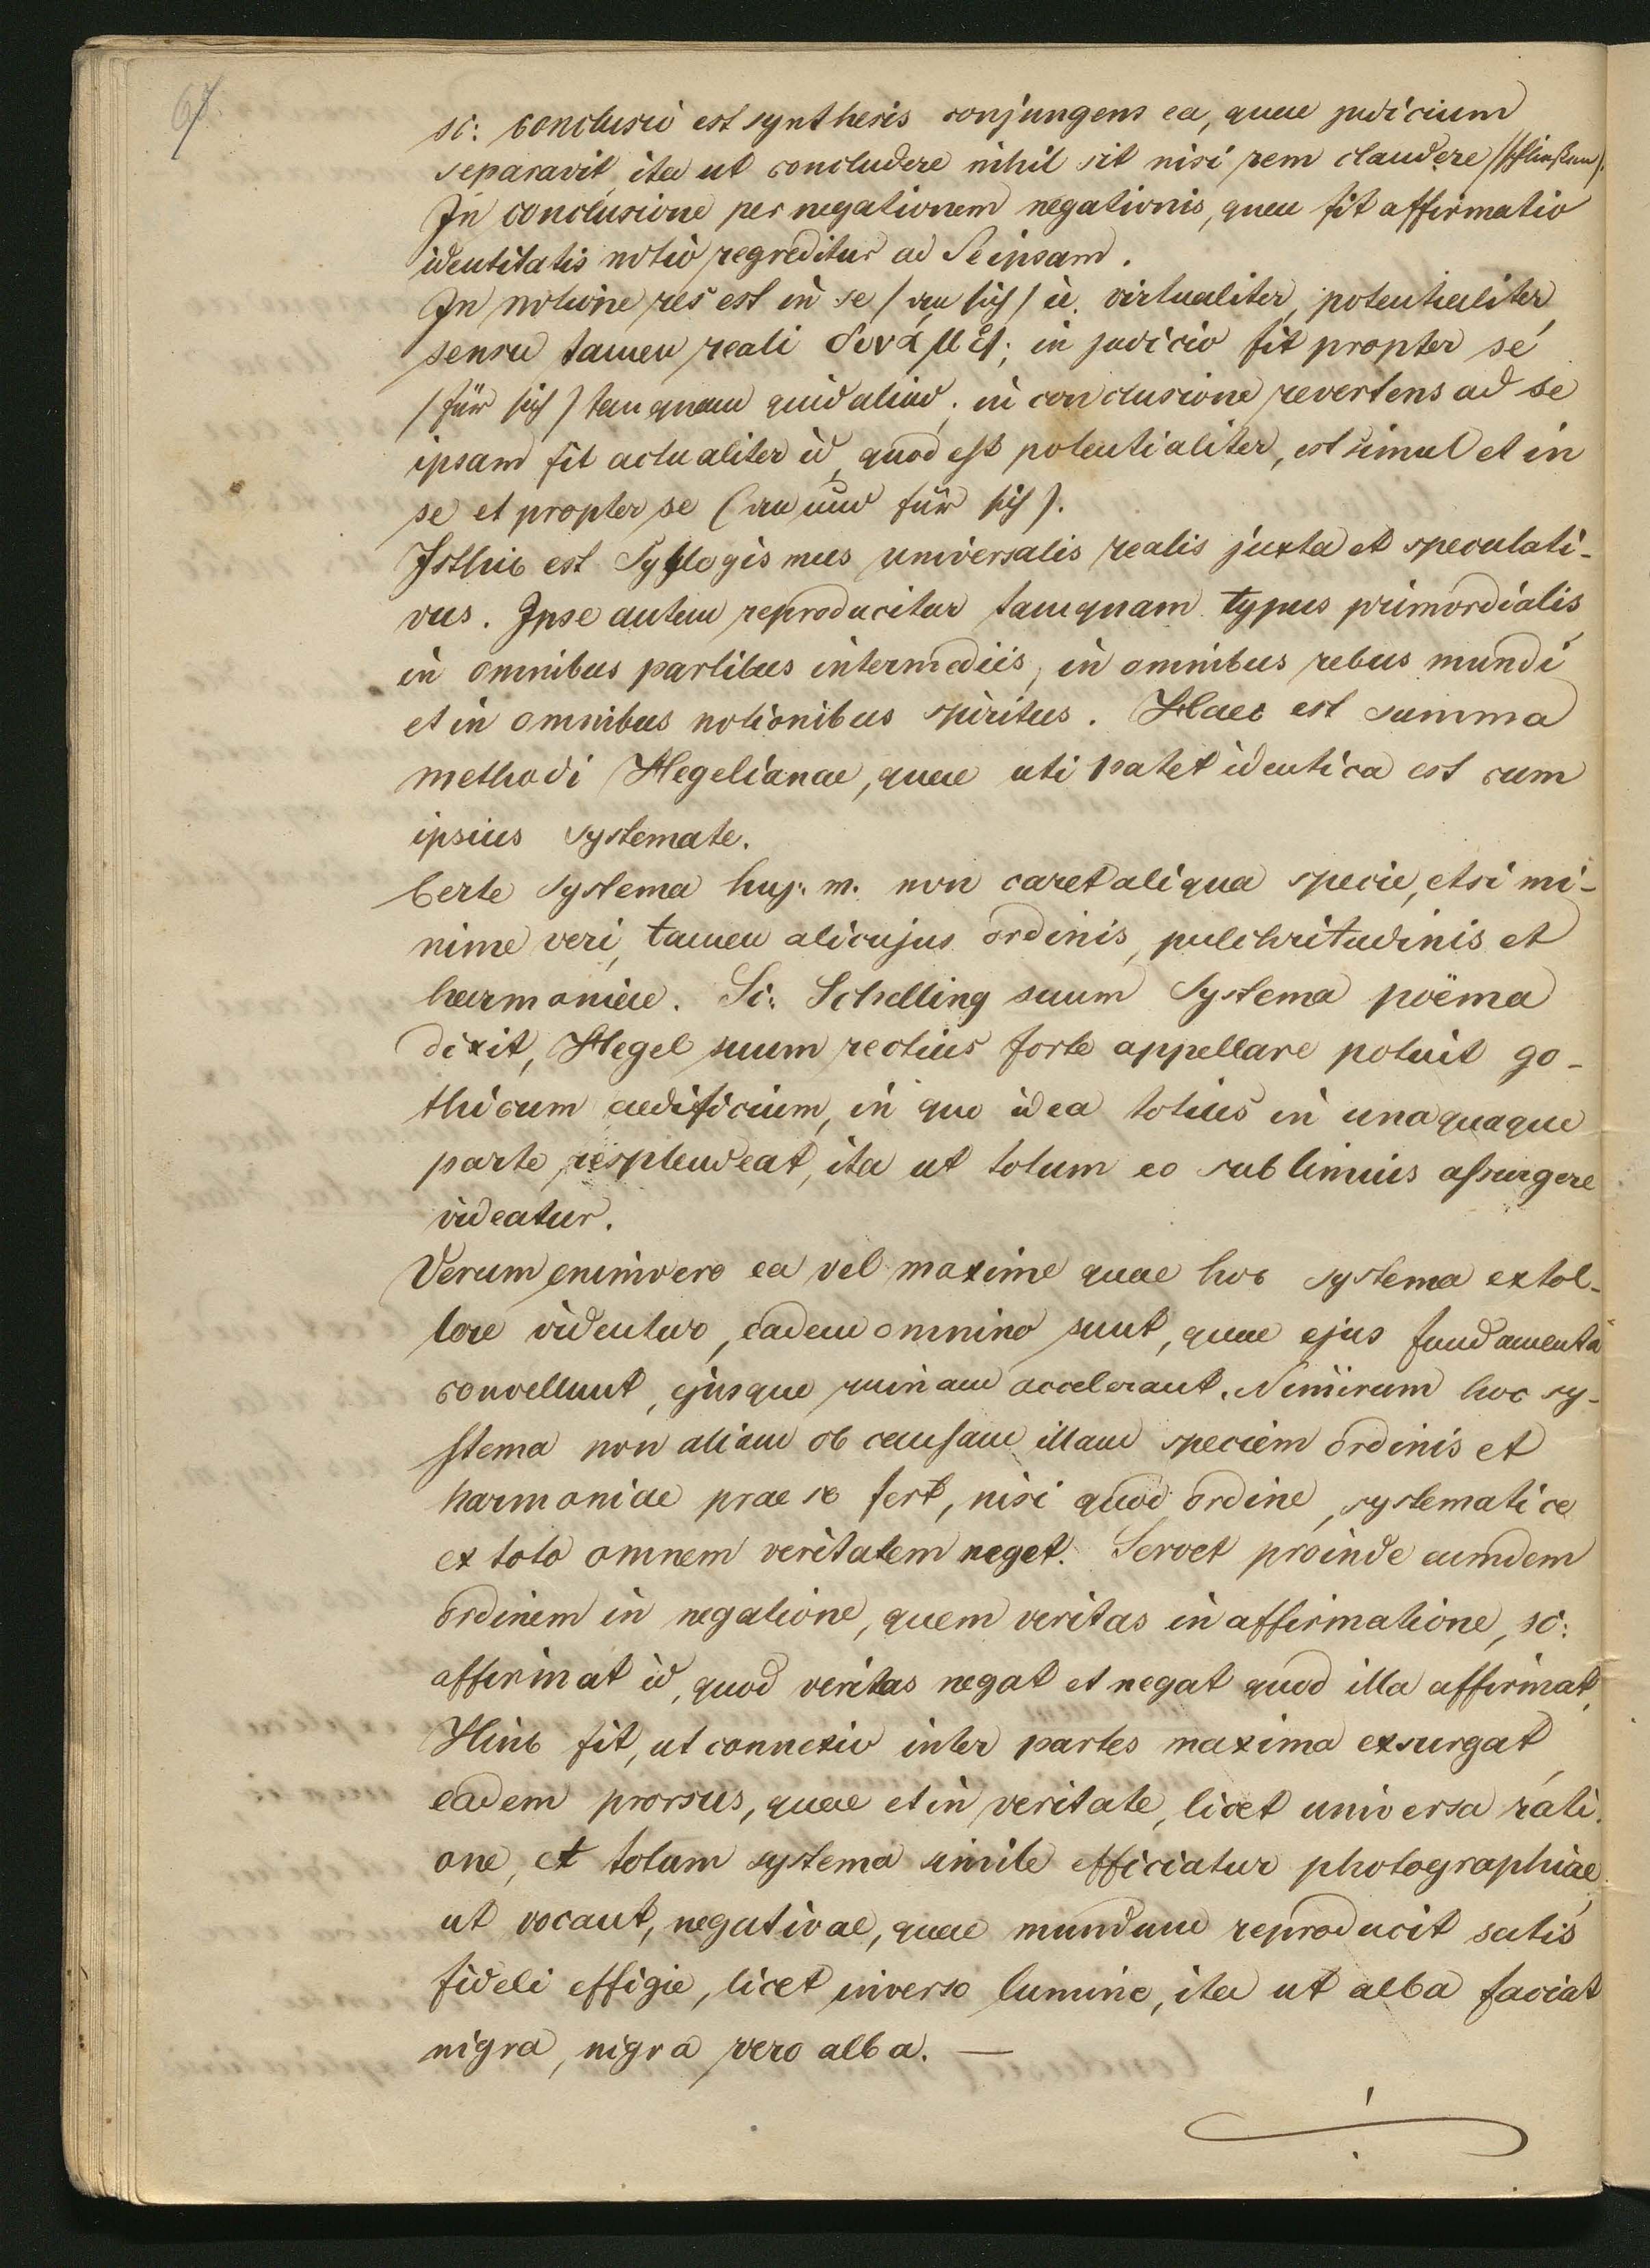 67
sc: conclusio est synthesis conjungens ea, quae judicium
separavit, ita ut concludere nihil sit nisi rem claudere /schließen/.
In conclusione per negationem negationis, quae fit affirmatio
identitatis notio regreditur ad Seipsam.
In notione res est in se / an sich / i.e. virtualiter, potentialiter,
sensu tamen reali δυνάμει; in judicio fit propter se
/ für sich / tanquam quid aliud; in conclusione revertens ad se
ipsam fit actualiter id, quod est potentialiter, est simul et in
se et propter se (an und für sich).
Isthic est Syllogismus universalis realis juxta et speculati-
vus. Ipse autem reproducitur tamquam typus primordialis
in omnibus partibus intermediis, in omnibus rebus mundi
et in omnibus notionibus spiritus. Haec est summa
methodi Hegelianae, quae uti patet identica est cum
ipsius systemate.
Certe systema huj. m. non caret aliqua specie, etsi mi-
nime veri, tamen alicujus ordinis, pulchritudinis et
harmoniae. Si: Schelling suum Systema poëma
dixit, Hegel suum rectius forte appellare potuit go-
thicum aedificium, in quo idea totius in unaquaque
parte resplendeat, ita ut totum eo sublimius assurgere
videatur.
Verum enimvero ea vel maxime quae hoc systema extol-
lere videntur, eadem omnino sunt, quae ejus fundamenta
convellunt, ejusque ruinam accelerant. Nimirum hoc sy-
stema non aliam ob causam illam speciem ordinis et
harmoniae prae se fert, nisi quod ordine, systematice
ex toto omnem veritatem neget. Servet proinde eumdem
ordinem in negatione, quem veritas in affirmatione, sc:
affirmat id, quod veritas negat et negat quod illa affirmat.
Hinc fit, ut connexio inter partes maxima exsurgat,
eadem prorsus, quae et in veritate, licet universa rati-
one, et totum systema simile efficiatur photographiae,
ut vocant, negativae, quae mundum reproducit satis
fideli effigie, licet inverso lumine, ita ut alba faciat
nigra, nigra vero alba. —